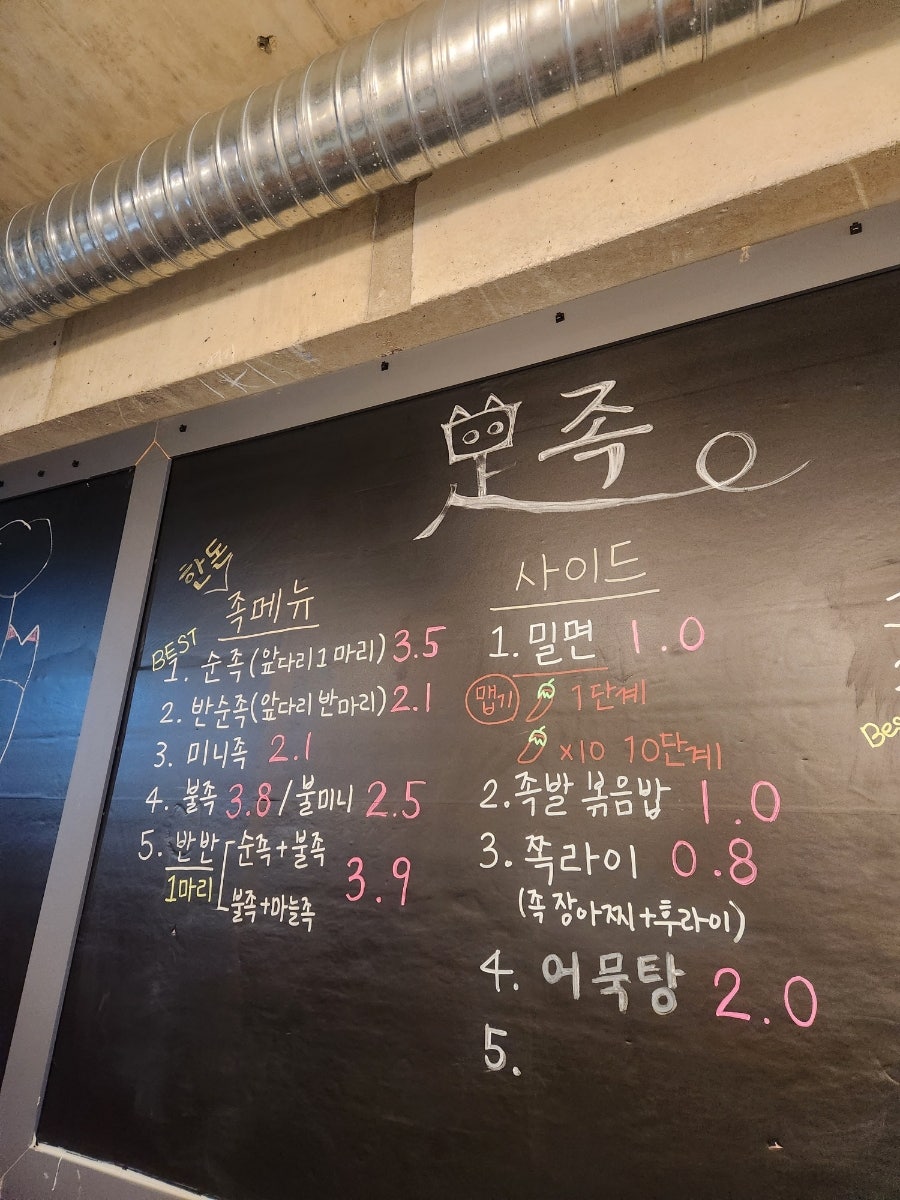 묘족
한돈
족메뉴
BEST
1. 순족(앞다리1마리) 3.5
2. 반순족(앞다리 반마리) 2.1
3. 미니족 2.1
4. 불족 3.8 / 불미니 2.5
5. 반반 순족+불족 3.9
1마리 불족+마늘족
사이드
1. 밀면 1.0
맵기 1단계
x10 10단계
2. 족발 볶음밥 1.0
3. 쪽라이 0.8
(족장아찌+후라이)
4. 어묵탕 2.0
5.